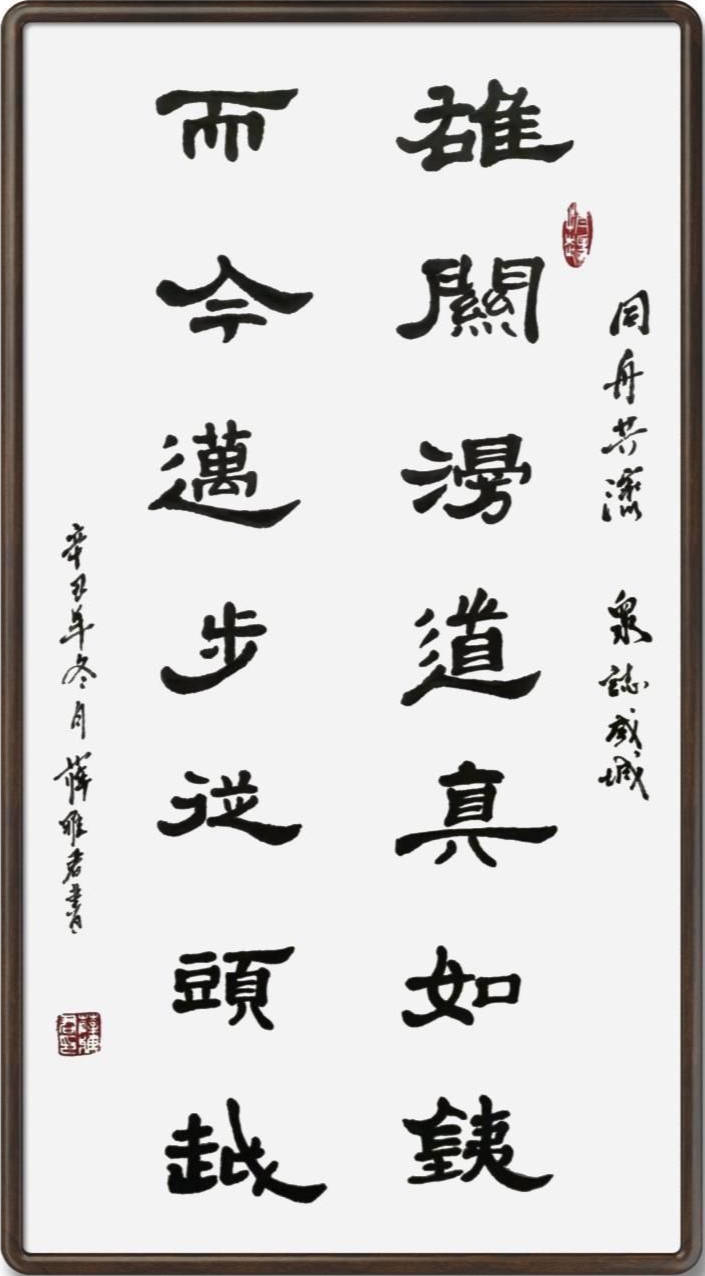 同舟共濟 眾誌成城
雄關漫道真如銕
而今邁步從頭越
辛丑年冬月薛雅君書